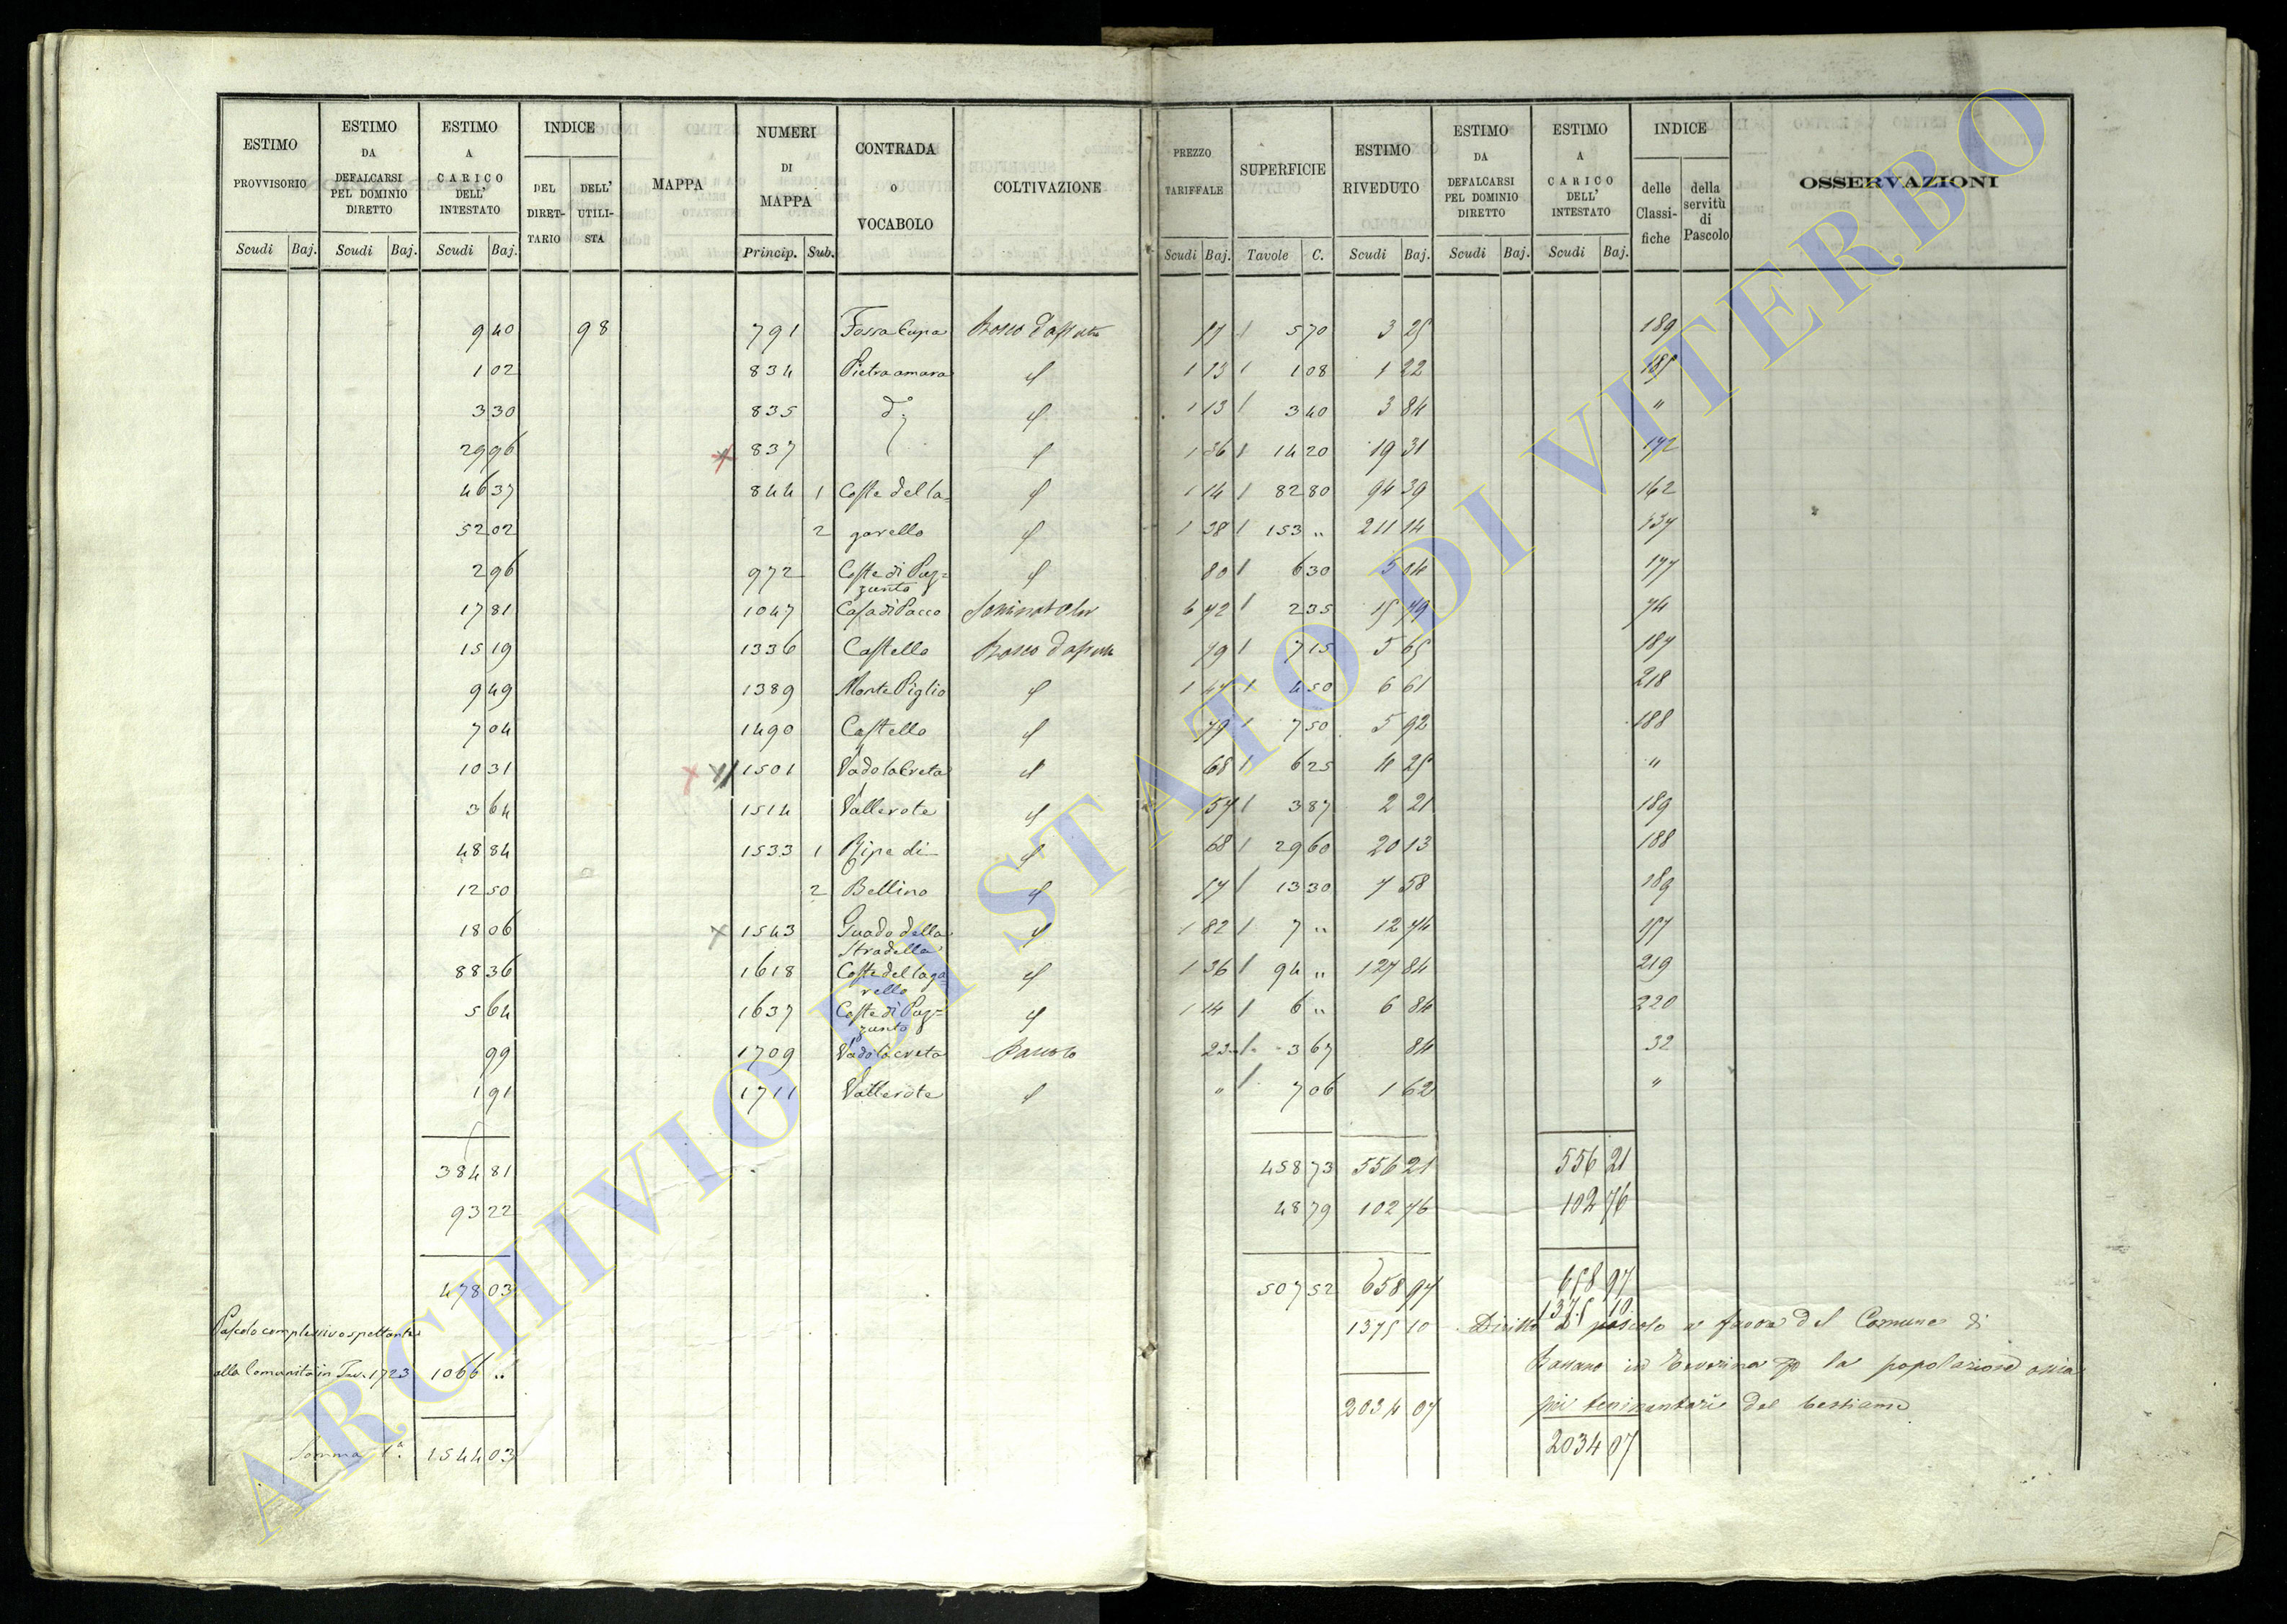 ESTIMO PROVVISORIO | ESTIMO DA DEFALCARSI PEL DOMINIO DIRETTO | ESTIMO A CARICO DELL' INTESTATO | INDICE | MAPPA | NUMERI DI MAPPA | CONTRADA O VOCABOLO | COLTIVAZIONE | PREZZO TARIFFALE | SUPERFICIE | ESTIMO RIVEDUTO | ESTIMO DA DEFALCARSI PEL DOMINIO DIRETTO | ESTIMO A CARICO DELL' INTESTATO | INDICE | OSSERVAZIONI
DEL DIRETTARIO | DELL' UTILISTA | delle Classifiche | della servitù di Pascolo
Scudi Baj. | Scudi Baj. | Scudi Baj. | Princip. Sub. | Scudi Baj. | Tavole C. | Scudi Baj. | Scudi Baj. | Scudi Baj.
9 40 | 98 | 791 | Fossa Cupa | Bosco d'affrutto | 57 | 5 70 | 3 25 | 189
1 02 | 834 | Pietra amara | d | 1 13 | 1 08 | 1 22 | 185
3 30 | 835 | do | d | 1 13 | 3 40 | 3 84 | "
29 96 | 837 | d | 1 36 | 14 20 | 19 31 | 172
46 37 | 844 1 | Coste del la= | d | 1 14 | 82 80 | 94 39 | 162
52 02 | 2 | garello | d | 1 38 | 153 " | 211 14 | 137
2 96 | 972 | Coste di Puz=zunto | d | 80 | 6 30 | 5 04 | 177
17 81 | 1047 | Casa di Pacco | 6 72 | 2 35 | 15 79 | 74
15 19 | 1336 | Castello | Bosco | 79 | 7 15 | 5 65 | 187
9 49 | 1389 | Monte Piglio | d | 1 47 | 4 50 | 6 61 | 218
7 04 | 1490 | Castello | d | 79 | 7 50 | 5 92 | 188
10 31 | 1501 | Vado la Creta | d | 68 | 6 25 | 4 25 | "
3 64 | 1514 | Vallerote | d | 57 | 3 87 | 2 21 | 189
48 84 | 1533 1 | Ripe di | d | 68 | 29 60 | 20 13 | 188
12 50 | 2 | Bellino | d | 57 | 13 30 | 7 58 | 189
18 06 | 1543 | Guado della Stradella | d | 1 82 | 7 " | 12 74 | 157
88 36 | 1618 | Coste del lagarello | d | 1 36 | 94 " | 127 84 | 219
5 64 | 1637 | Coste di Puz=zunto | d | 1 14 | 6 " | 6 84 | 220
99 | 1709 | Vado la creta | Pascolo | 23 | 3 67 | 84 | 32
1 91 | 1711 | Vallerote | d | " | 7 06 | 1 62 | "
384 81 | 458 73 | 556 21 | 556 21
93 22 | 48 79 | 102 76 | 102 76
478 03 | 507 52 | 658 97 | 658 97
Pascolo complessivo spettante | 1375 10 | 1375 10 | Diritto di pascolo a favore del Comune di
alla Comunità in Inv. 1723 | 1066 " | Bassano in Teverina per la popolazione ossia
2034 07 | pei terrinantari del bestiame
Somma Ca. | 1544 03 | 2034 07
ARCHIVIO DI STATO DI VITERBO